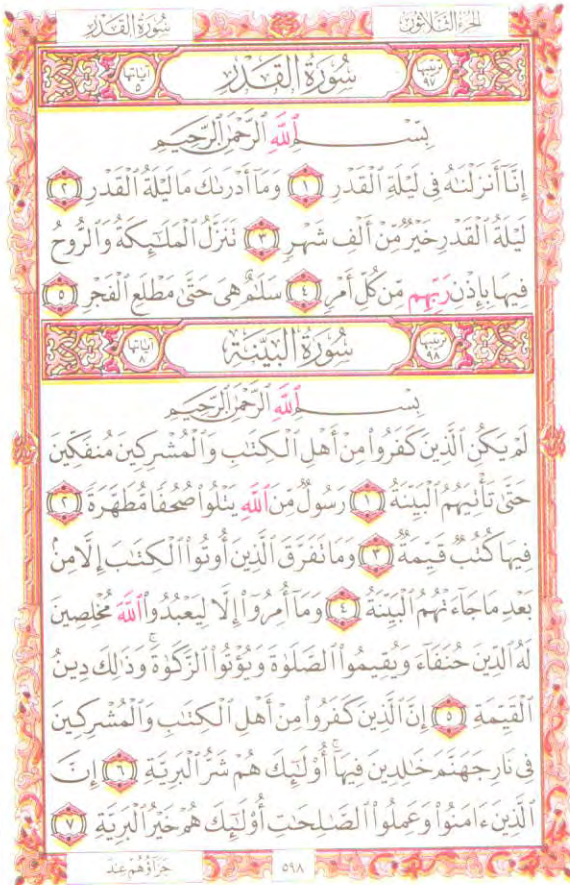 الجزء الثلاثون
سورة القدر
ترتيبها ٩٧
سُورَةُ الْقَدْرِ
آياتها ٥
بِسْمِ ٱللَّهِ ٱلرَّحْمَٰنِ ٱلرَّحِيمِ
إِنَّآ أَنزَلْنَٰهُ فِى لَيْلَةِ ٱلْقَدْرِ ١ وَمَآ أَدْرَىٰكَ مَا لَيْلَةُ ٱلْقَدْرِ ٢
لَيْلَةُ ٱلْقَدْرِ خَيْرٌ مِّنْ أَلْفِ شَهْرٍ ٣ تَنَزَّلُ ٱلْمَلَٰٓئِكَةُ وَٱلرُّوحُ
فِيهَا بِإِذْنِ رَبِّهِم مِّن كُلِّ أَمْرٍ ٤ سَلَٰمٌ هِىَ حَتَّىٰ مَطْلَعِ ٱلْفَجْرِ ٥
ترتيبها ٩٨
سُورَةُ الْبَيِّنَةِ
آياتها ٨
بِسْمِ ٱللَّهِ ٱلرَّحْمَٰنِ ٱلرَّحِيمِ
لَمْ يَكُنِ ٱلَّذِينَ كَفَرُوا۟ مِنْ أَهْلِ ٱلْكِتَٰبِ وَٱلْمُشْرِكِينَ مُنفَكِّينَ
حَتَّىٰ تَأْتِيَهُمُ ٱلْبَيِّنَةُ ١ رَسُولٌ مِّنَ ٱللَّهِ يَتْلُوا۟ صُحُفًا مُّطَهَّرَةً ٢
فِيهَا كُتُبٌ قَيِّمَةٌ ٣ وَمَا تَفَرَّقَ ٱلَّذِينَ أُوتُوا۟ ٱلْكِتَٰبَ إِلَّا مِنۢ
بَعْدِ مَا جَآءَتْهُمُ ٱلْبَيِّنَةُ ٤ وَمَآ أُمِرُوٓا۟ إِلَّا لِيَعْبُدُوا۟ ٱللَّهَ مُخْلِصِينَ
لَهُ ٱلدِّينَ حُنَفَآءَ وَيُقِيمُوا۟ ٱلصَّلَوٰةَ وَيُؤْتُوا۟ ٱلزَّكَوٰةَ ۚ وَذَٰلِكَ دِينُ
ٱلْقَيِّمَةِ ٥ إِنَّ ٱلَّذِينَ كَفَرُوا۟ مِنْ أَهْلِ ٱلْكِتَٰبِ وَٱلْمُشْرِكِينَ
فِى نَارِ جَهَنَّمَ خَٰلِدِينَ فِيهَآ ۚ أُو۟لَٰٓئِكَ هُمْ شَرُّ ٱلْبَرِيَّةِ ٦ إِنَّ
ٱلَّذِينَ ءَامَنُوا۟ وَعَمِلُوا۟ ٱلصَّٰلِحَٰتِ أُو۟لَٰٓئِكَ هُمْ خَيْرُ ٱلْبَرِيَّةِ ٧
٥٩٨
جَزَآؤُهُمْ عِندَ